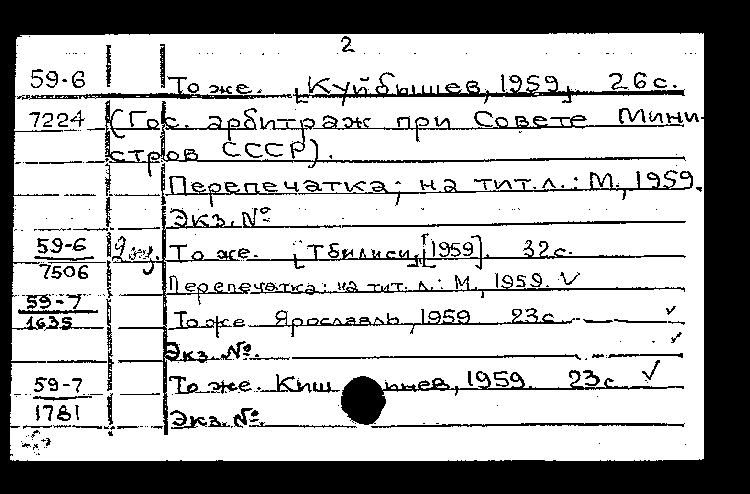 2
59-6 То же. [Куйбышев, 1959] 26 с.
7224 (Гос. арбитраж при Совете Мини-
стров СССР).
Перепечатка; на тит. л.: М., 1959.
Экз. №
59-6 2 экз. То же. [Тбилиси], [1959]. 32 с.
7506 Перепечатка: на тит. л.: М., 1959. √
59-7
1635 То же Ярославль, 1959 23 с √
Экз. №. √
59-7 То же. Киш инев, 1959. 23 с √
1781 Экз. №.